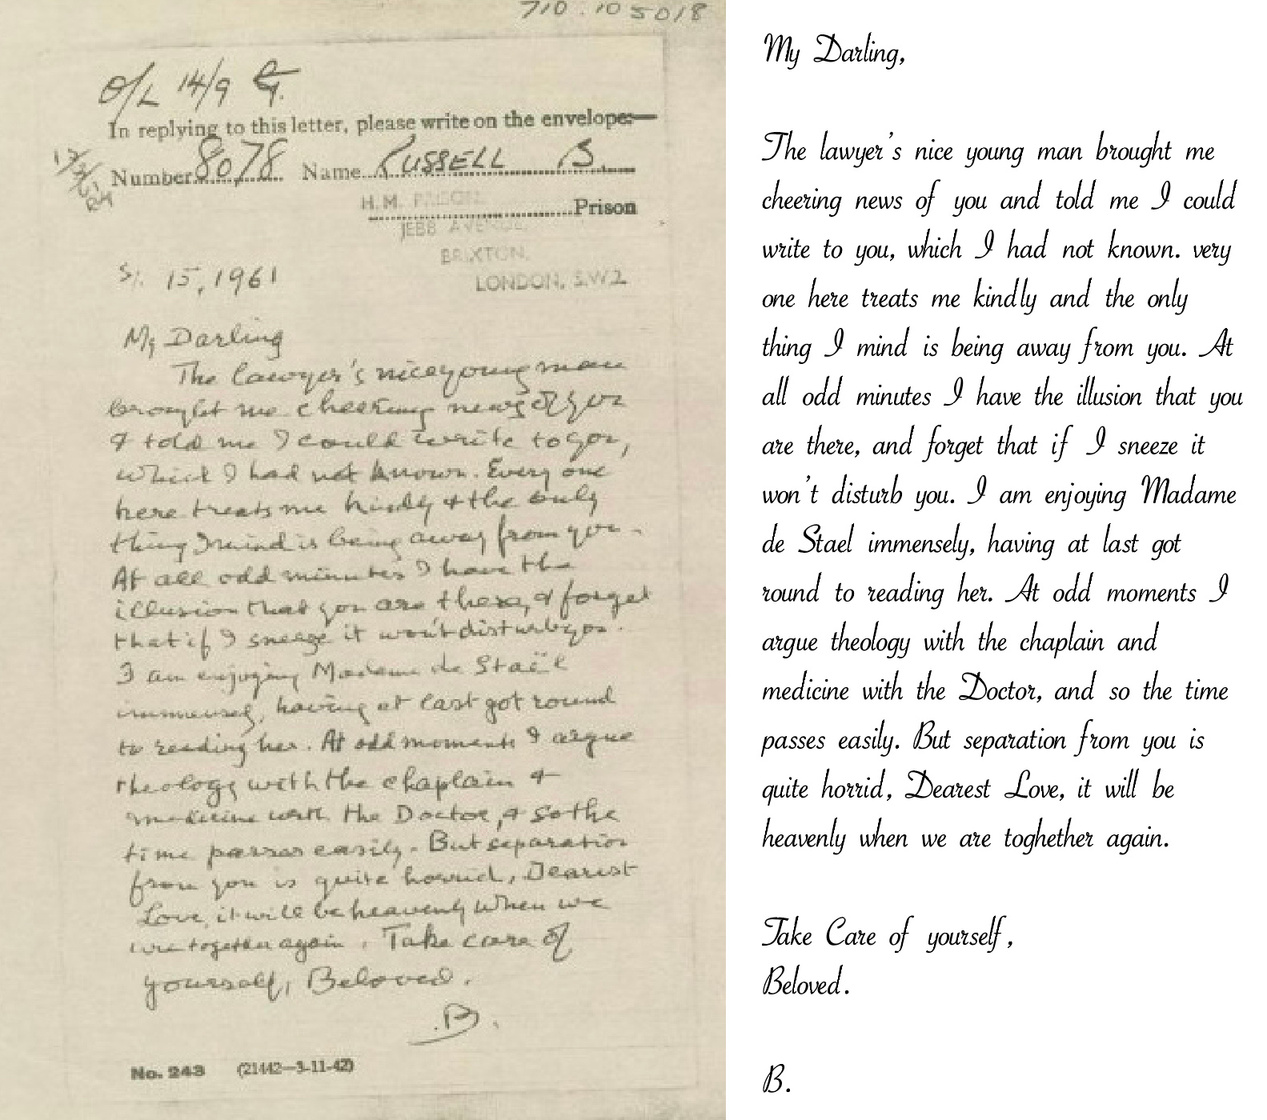 710.105018
O/L 14/9 G.
In replying to this letter, please write on the envelope:—
Number 8078 Name RUSSELL B.
H.M. PRISON Prison
JEBB AVENUE,
BRIXTON,
LONDON, S.W.2.
15, 1961
My Darling
The lawyer's nice young man
brought me cheering news of you
& told me I could write to you,
which I had not known. Every one
here treats me kindly & the only
thing I mind is being away from you.
At all odd minutes I have the
illusion that you are there, & forget
that if I sneeze it won't disturb you.
I am enjoying Madame de Staël
immensely, having at last got round
to reading her. At odd moments I argue
theology with the chaplain &
medicine with the Doctor, & so the
time passes easily. But separation
from you is quite horrid, Dearest
Love, it will be heavenly when we
are together again. Take care of
yourself, Beloved.
B.
No. 243 (21442—3-11-42)
My Darling,
The lawyer's nice young man brought me
cheering news of you and told me I could
write to you, which I had not known. very
one here treats me kindly and the only
thing I mind is being away from you. At
all odd minutes I have the illusion that you
are there, and forget that if I sneeze it
won't disturb you. I am enjoying Madame
de Stael immensely, having at last got
round to reading her. At odd moments I
argue theology with the chaplain and
medicine with the Doctor, and so the time
passes easily. But separation from you is
quite horrid, Dearest Love, it will be
heavenly when we are toghether again.
Take Care of yourself,
Beloved.
B.